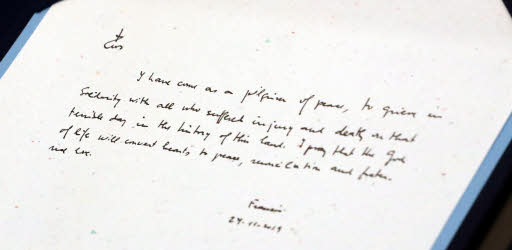 I have come as a pilgrim of peace, to grieve in
solidarity with all who suffered injury and death on that
terrible day in the history of this land. I pray that the God
of life will convert hearts to peace, reconciliation and frater-
nal love.
Francis
24-11-2019